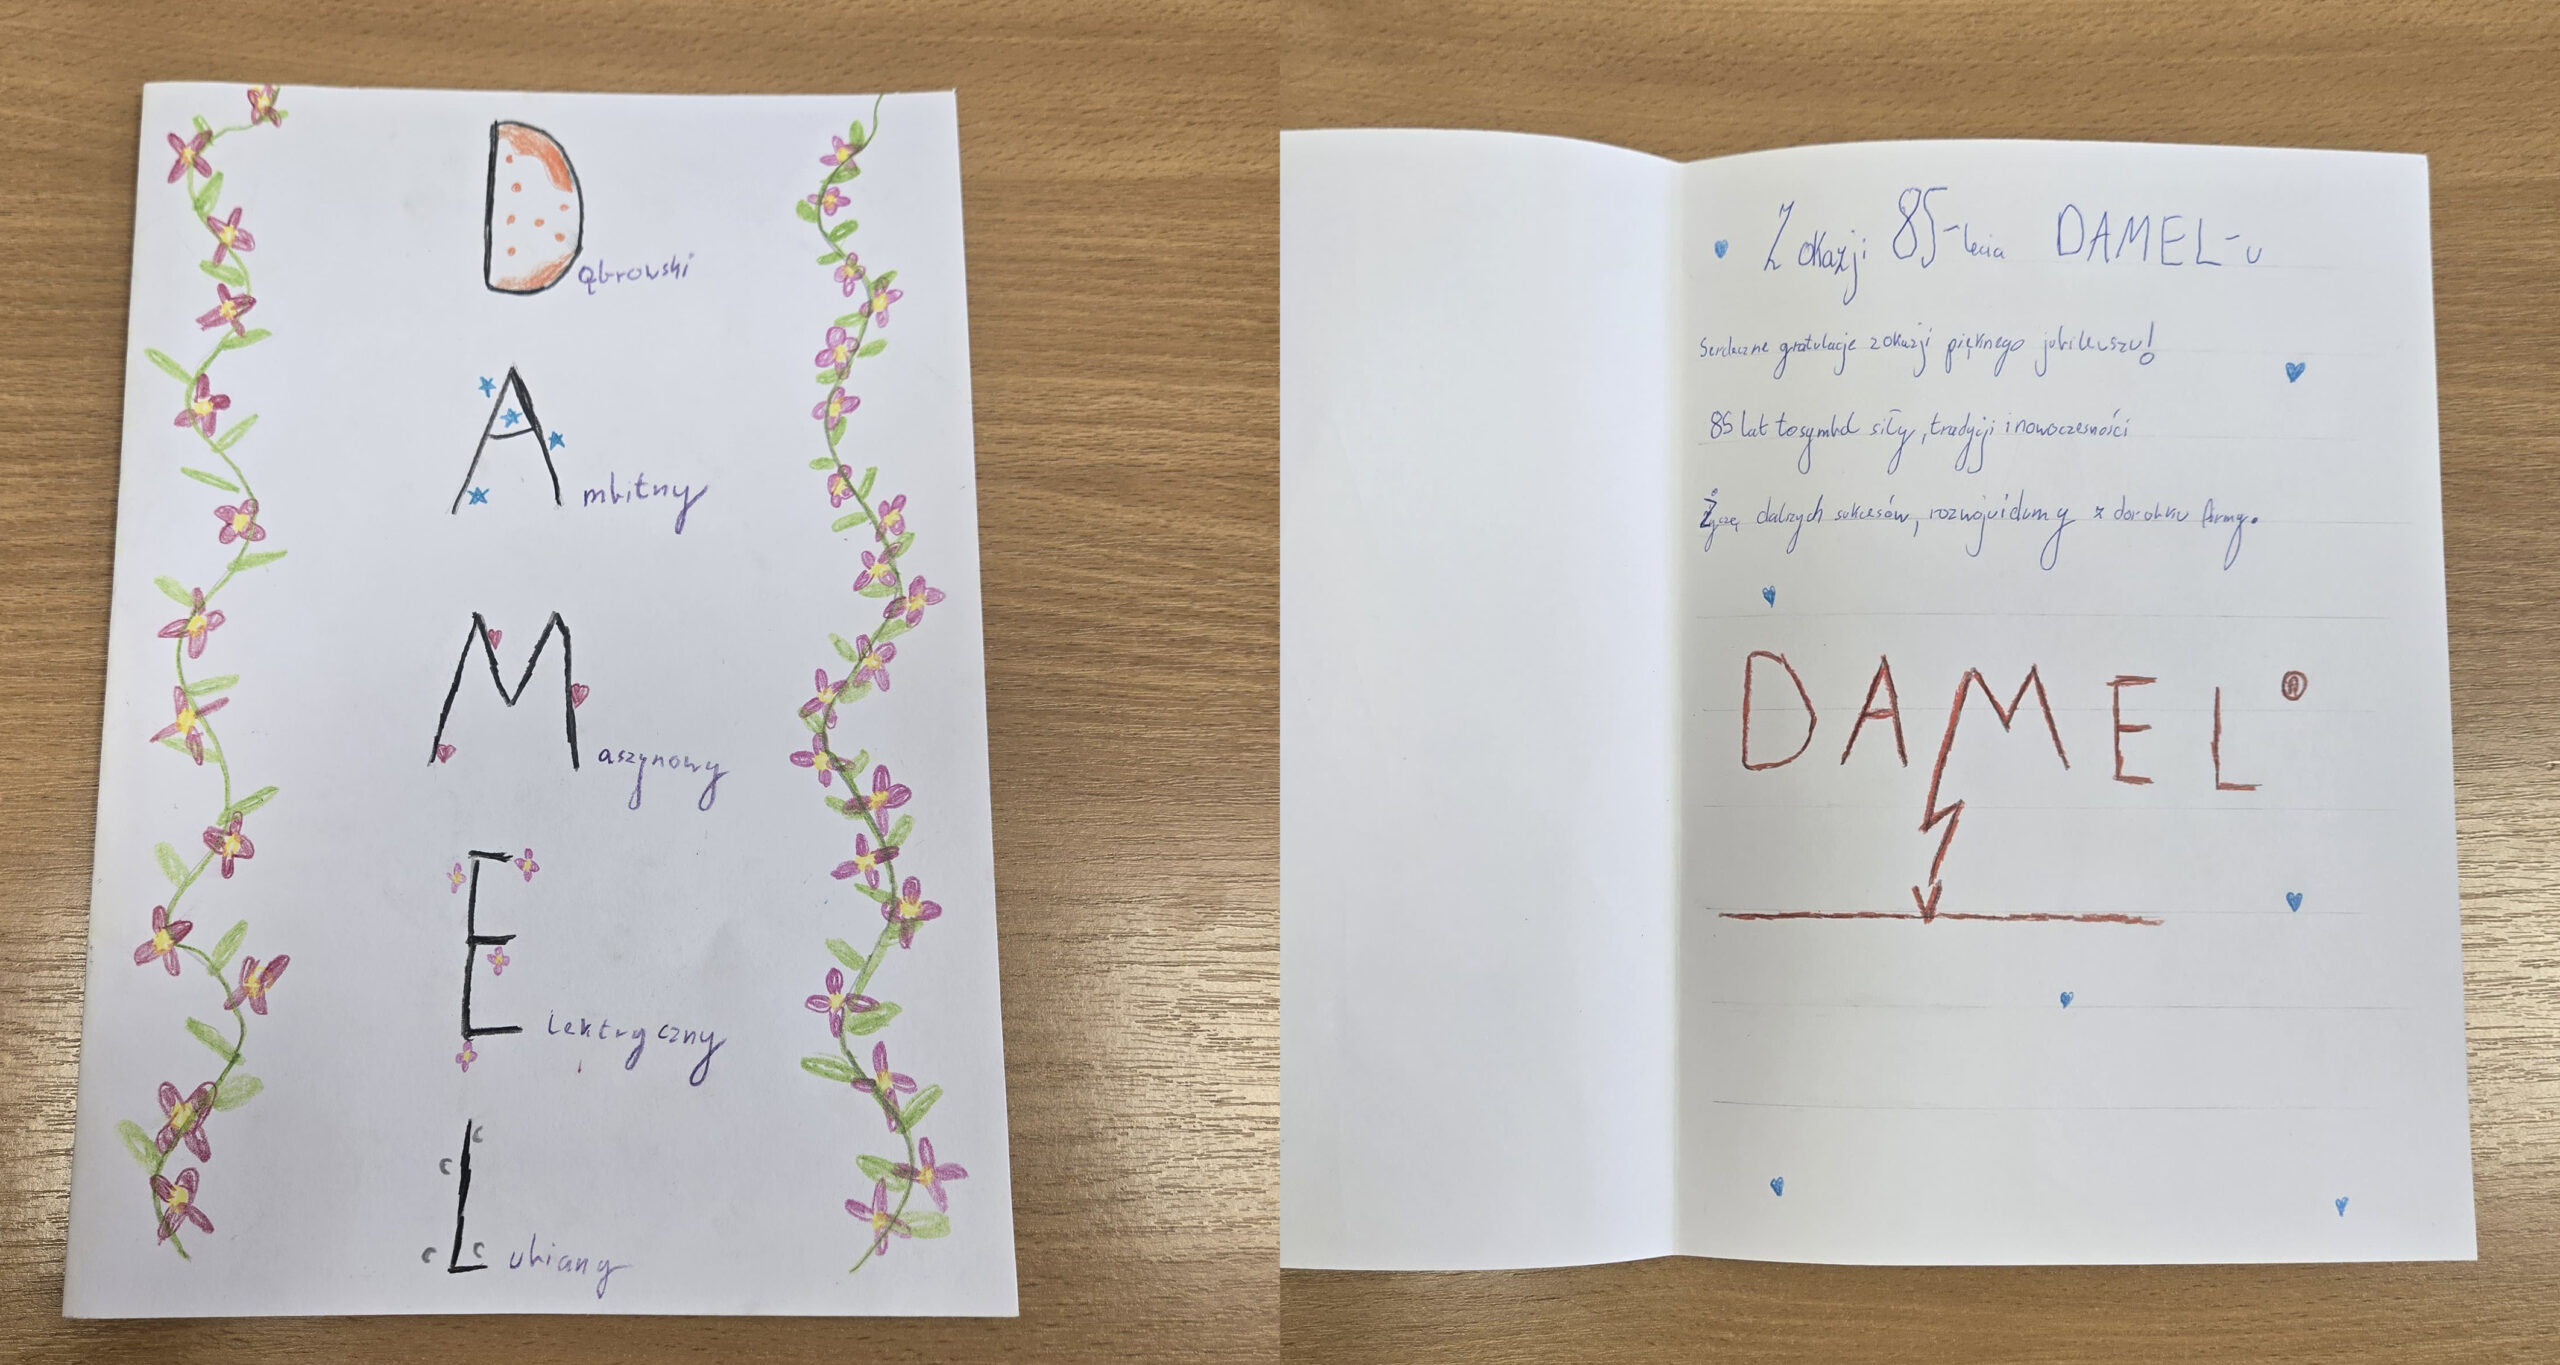 Dąbrowski
Ambitny
Maszynowy
Elektryczny
Lubiany
Z okazji 85-lecia DAMEL-u
Serdeczne gratulacje z okazji pięknego jubileuszu!
85 lat to symbol siły, tradycji i nowoczesności
Życzę dalszych sukcesów, rozwoju i dumy z dorobku firmy.
DAMEL®